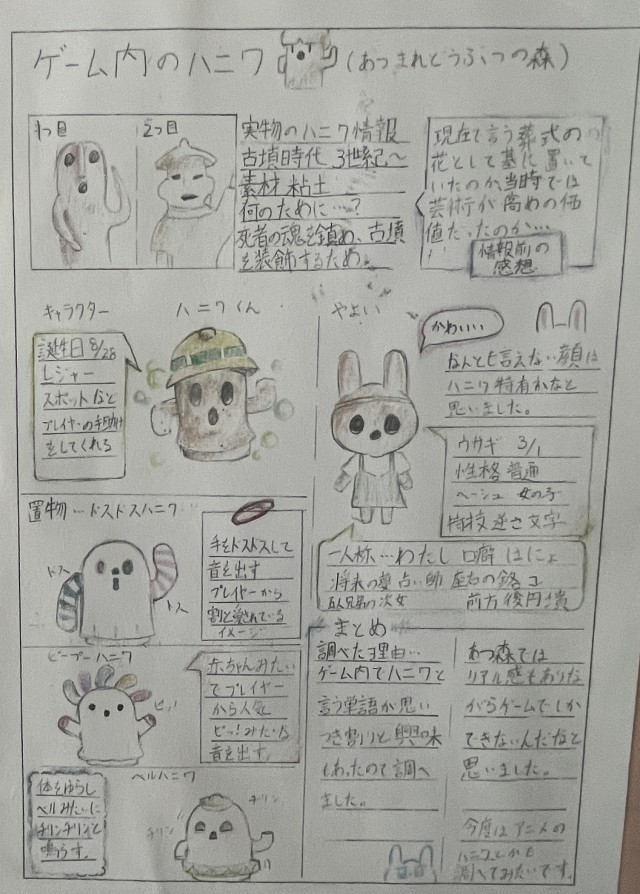 ゲーム内のハニワ (あつまれどうぶつの森)
1つ目
2つ目
実物のハニワ情報
古墳時代 3世紀〜
素材 粘土
何のために…?
死者の魂を鎮め、古墳
を装飾するため。
現在で言う葬式の
花として墓に置いて
いたのか、当時では
芸術が高めの価
値だったのか…
情報前の
感想
キャラクター ハニワくん
誕生日 8/28
レジャー
スポットなど
プレイヤーの手助け
をしてくれる
やよい
かわいい
なんとも言えない顔は
ハニワ特有かなと
思いました。
ウサギ 3/1
性格 普通
ベージュ 女の子
特技 逆さ文字
一人称…わたし 口癖 はにょ
将来の夢 占い師 座右の銘
五兄弟の次女 前方後円墳
置物…ドスドスハニワ
ドス
ドス
手をドスドスして
音を出す
プレイヤーから
割と愛されている
イメージ
ピープーハニワ
ピッ!
赤ちゃんみたい
でプレイヤー
から人気
ピッ!みたいな
音を出す。
ベルハニワ
体をゆらし
ベルみたいに
チリンチリンと
鳴らす。
チリン
チリン
まとめ
調べた理由…
ゲーム内でハニワと
言う単語が思い
つき割りと興味
もあったので調べ
ました。
あつ森では
リアル感もありな
がらゲームでしか
できないんだなと
思いました。
今度はアニメの
ハニワとかも
調べてみたいです。